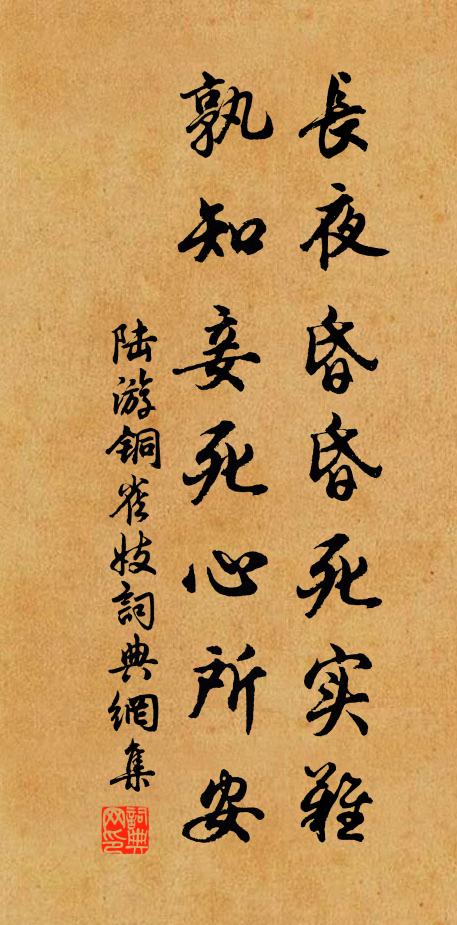 長夜昏昏死实難
孰知妾死心所安
陆游铜雀妓詞典網集
詞典网印